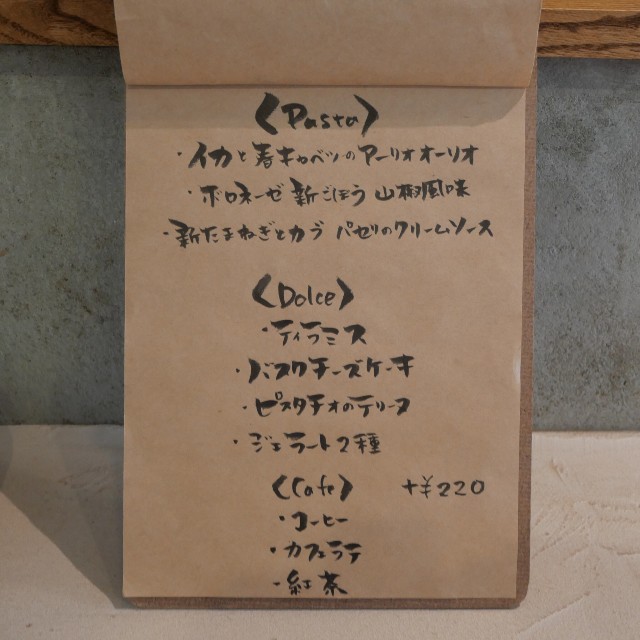 〈Pasta〉
・イカと春キャベツのアーリオオーリオ
・ボロネーゼ 新ごぼう 山椒風味
・新たまねぎとカブ パセリのクリームソース
〈Dolce〉
・ティラミス
・バスクチーズケーキ
・ピスタチオのテリーヌ
・ジェラート2種
〈Cafe〉 +¥220
・コーヒー
・カフェラテ
・紅茶